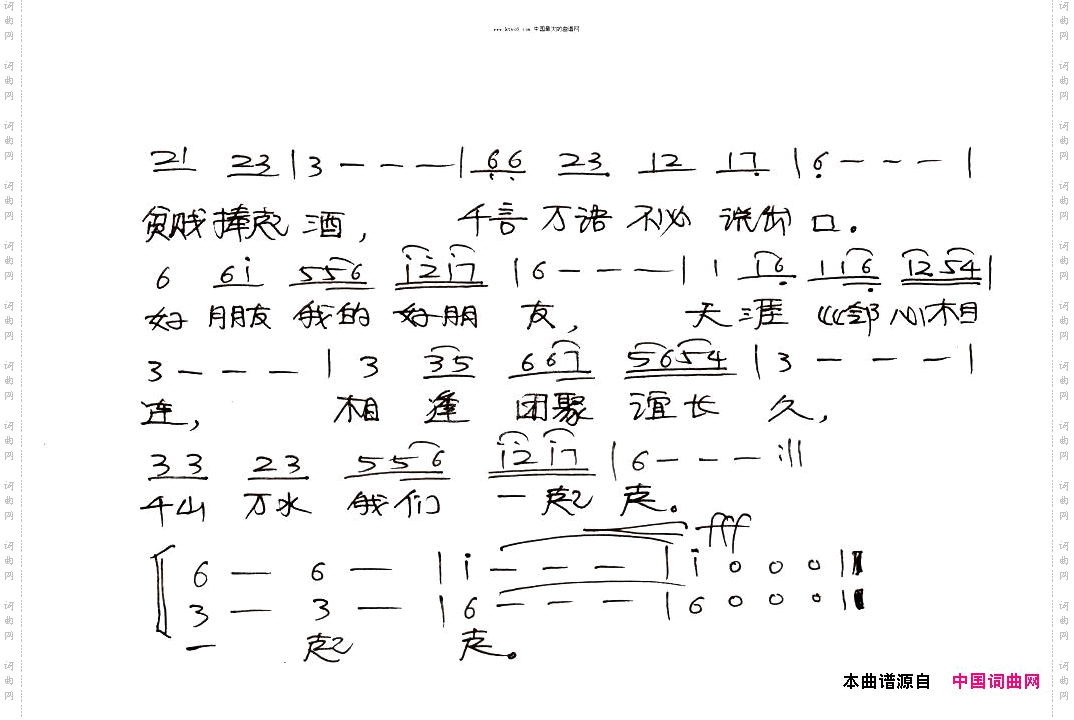 中国最大的曲谱网
21 23 | 3 - - - | 66 23 12 17 | 6 - - - |
贫贱捧起酒， 千言万语不必说出口。
6 6i 556 i2i7 | 6 - - - | 1 16 116 1254 |
好朋友我的好朋友， 天涯 邻心相
3 - - - | 3 35 667 5654 | 3 - - - |
连， 相逢团聚谊长久，
33 23 556 i2i7 | 6 - - - :||
千山万水我们一起走。
fff
6 - 6 - | i - - - | i 0 0 0 ||
3 - 3 - | 6 - - - | 6 0 0 0 ||
一起走。
本曲谱源自 中国词曲网